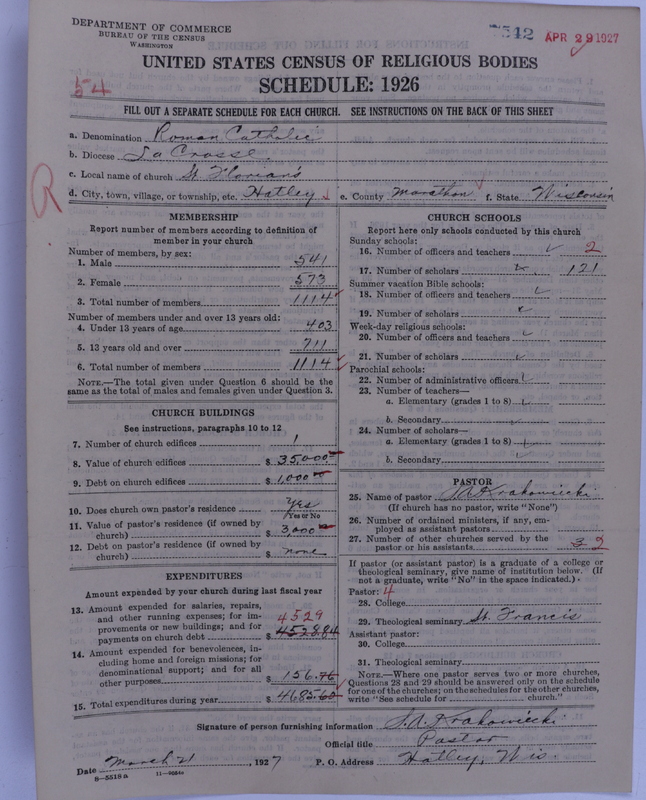 DEPARTMENT OF COMMERCE
BUREAU OF THE CENSUS
WASHINGTON
7542 APR 29 1927
UNITED STATES CENSUS OF RELIGIOUS BODIES
SCHEDULE: 1926
54
FILL OUT A SEPARATE SCHEDULE FOR EACH CHURCH. SEE INSTRUCTIONS ON THE BACK OF THIS SHEET
a. Denomination Roman Catholic
b. Diocese La Crosse.
c. Local name of church St. Florian's
d. City, town, village, or township, etc. Hatley e. County Marathon f. State Wisconsin
R
MEMBERSHIP
Report number of members according to definition of
member in your church
Number of members, by sex:
1. Male 541
2. Female 573
3. Total number of members 1114
Number of members under and over 13 years old:
4. Under 13 years of age 403
5. 13 years old and over 711
6. Total number of members 1114
NOTE.—The total given under Question 6 should be
same as the total of males and females given under Question 3.
CHURCH BUILDINGS
See instructions, paragraphs 10 to 12
7. Number of church edifices 1
8. Value of church edifices $ 35,000
9. Debt on church edifices $ 1,000
10. Does church own pastor's residence Yes
Yes or No
11. Value of pastor's residence (if owned by
church) $ 3,000
12. Debt on pastor's residence (if owned by
church) $ none
EXPENDITURES
Amount expended by your church during last fiscal year
13. Amount expended for salaries, repairs,
and other running expenses; for im-
provements or new buildings; and for
payments on church debt $ 4528.84
4529
14. Amount expended for benevolences, in-
cluding home and foreign missions; for
denominational support; and for all
other purposes $ 156.76
15. Total expenditures during year $ 4685.60
CHURCH SCHOOLS
Report here only schools conducted by this church
Sunday schools:
16. Number of officers and teachers 2
17. Number of scholars 121
Summer vacation Bible schools:
18. Number of officers and teachers
19. Number of scholars
Week-day religious schools:
20. Number of officers and teachers
21. Number of scholars
Parochial schools:
22. Number of administrative officers
23. Number of teachers—
a. Elementary (grades 1 to 8)
b. Secondary
24. Number of scholars—
a. Elementary (grades 1 to 8)
b. Secondary
PASTOR
25. Name of pastor J. A. Krakowiecki
(If church has no pastor, write "None")
26. Number of ordained ministers, if any, em-
ployed as assistant pastors
27. Number of other churches served by the
pastor or his assistants 3 2
If pastor (or assistant pastor) is a graduate of a college or
theological seminary, give name of institution below. (If
not a graduate, write "No" in the space indicated.)
Pastor: 4
28. College
29. Theological seminary St. Francis
Assistant pastor:
30. College
31. Theological seminary
NOTE.—Where one pastor serves two or more churches,
Questions 28 and 29 should be answered only on the schedule
for one of the churches; on the schedules for the other churches,
write "See schedule for church."
Signature of person furnishing information J. A. Krakowiecki
Official title Pastor
Date March 21, 1927 P. O. Address Hatley, Wis.
8—5518a